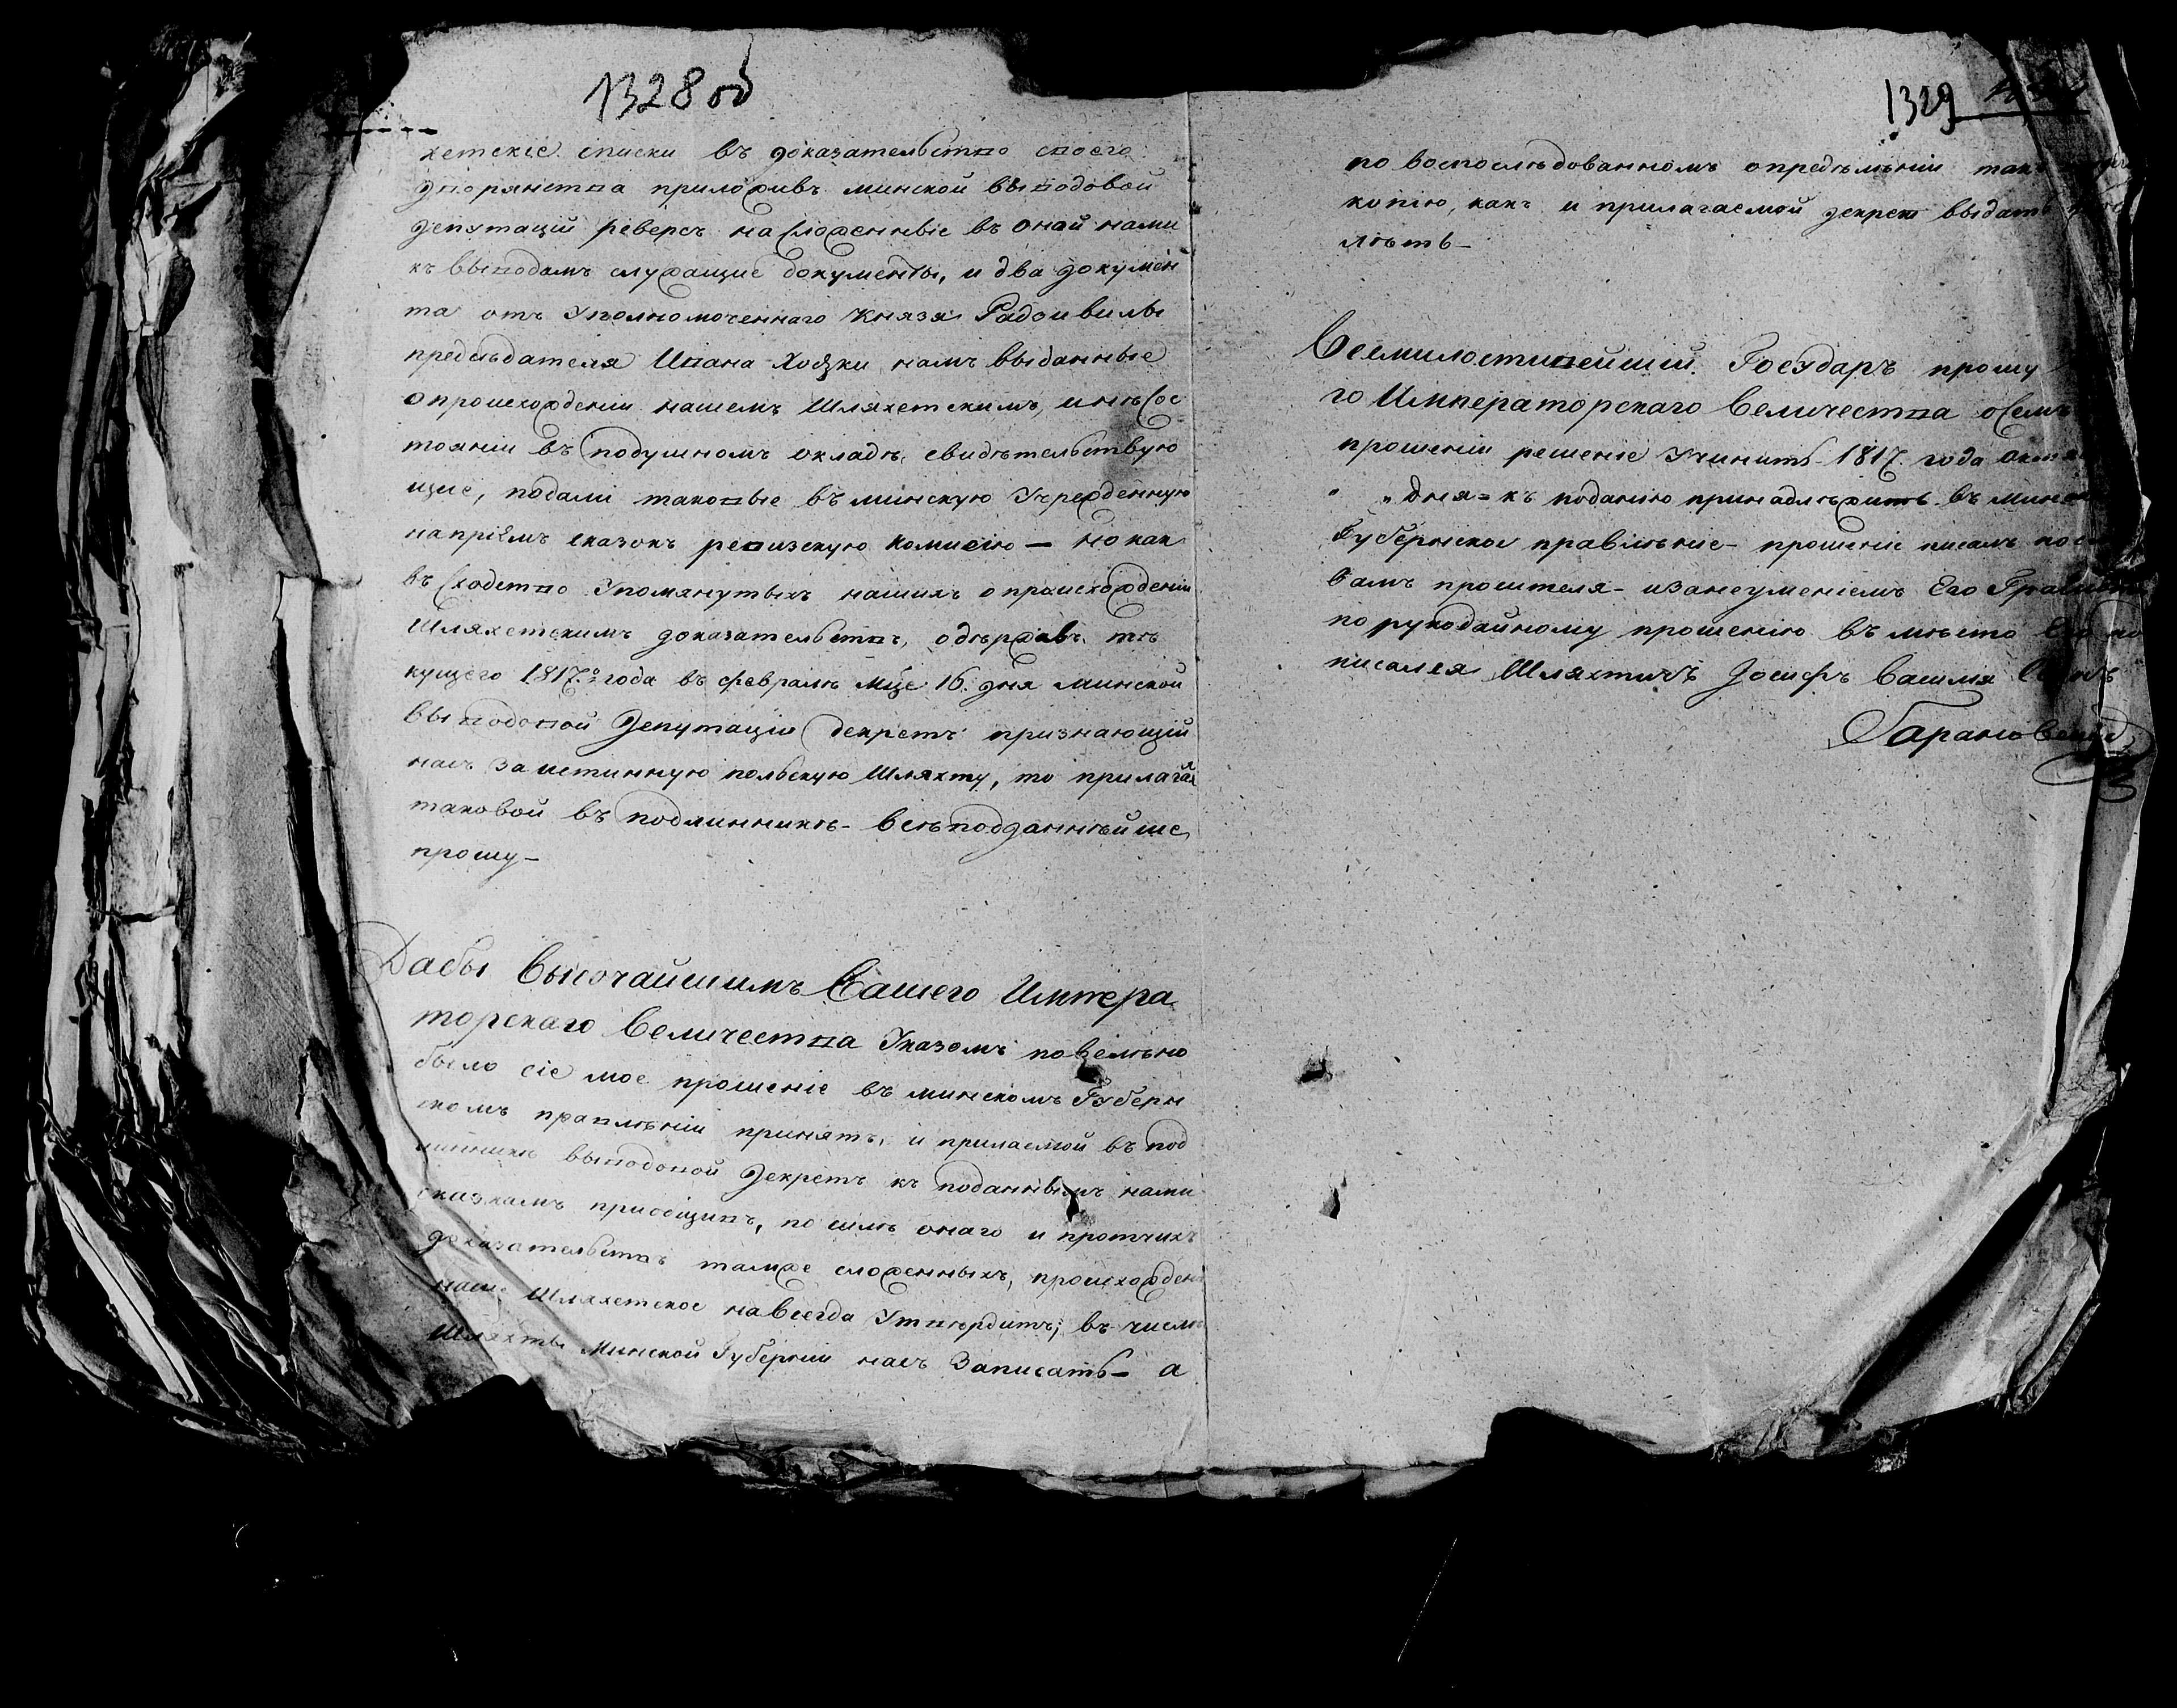 1328 об
хетскіе списки въ доказательство своего
дворянства приложивъ минской выводовой
депутаціи реверсъ на сложенныіе въ оной нами
къ выводамъ служащие документы, и два докумен
та отъ Уполномоченнаго Князя Радзивилы
предсѣдателя Ивана Ходзки намъ выданные
о происхожденіи нашемъ Шляхетскимъ, и нѣ сос
тояніи въ подушномъ окладѣ, свидѣтельствую
щие, подали таковые въ минскую Учрежденную
на пріемъ сказокъ ревизскую комисію — но как
въ сходство Упомянутыхъ нашихъ о происхожденіи
Шляхетскимъ доказательствъ, одержавъ тѣ
кущего 1817.го года въ февралѣ мце 16. дня минской
выводовой Депутаціи декретъ признающій
насъ за истинную польскую Шляхту, то прилагая
таковой въ подлинникѣ - всѣподданнѣйше
прошу —
Дабы высочайшимъ Вашего Импера
торскаго Величества Указомъ повѣлѣно
было сіе мое прошеніе въ минскомъ Губерн
скомъ правлѣніи принять, и прилаемой въ под
линникѣ выводовой Декретъ къ поданнымъ нами
сказкамъ приобщивъ, по силѣ онаго и протчихъ
доказательствъ тамже сложенныхъ, происхожден
наше Шляхетское навсегда Утвердить; въ числѣ
Шляхты Минской Губерніи насъ Записать — а
1329
по воспослѣдованномъ опредѣлѣніи так
копію, какъ и прилагаемой декрет выдать
лѣть —
Всемилостивейшій Государъ прошу
го Императорскаго Величества о семъ
прошеніи решеніе Учинить 1817. года
" " Дня = къ поданію принадлѣжитъ въ минск
Губернское правілѣніе - прошеніе писалъ по с
вамъ просителя - и за неуменіемъ Его Грамоты
по рукодайному прошенію въ мѣсто Его по
писался Шляхтичъ Іосифъ Василя Сынъ
Барановскій